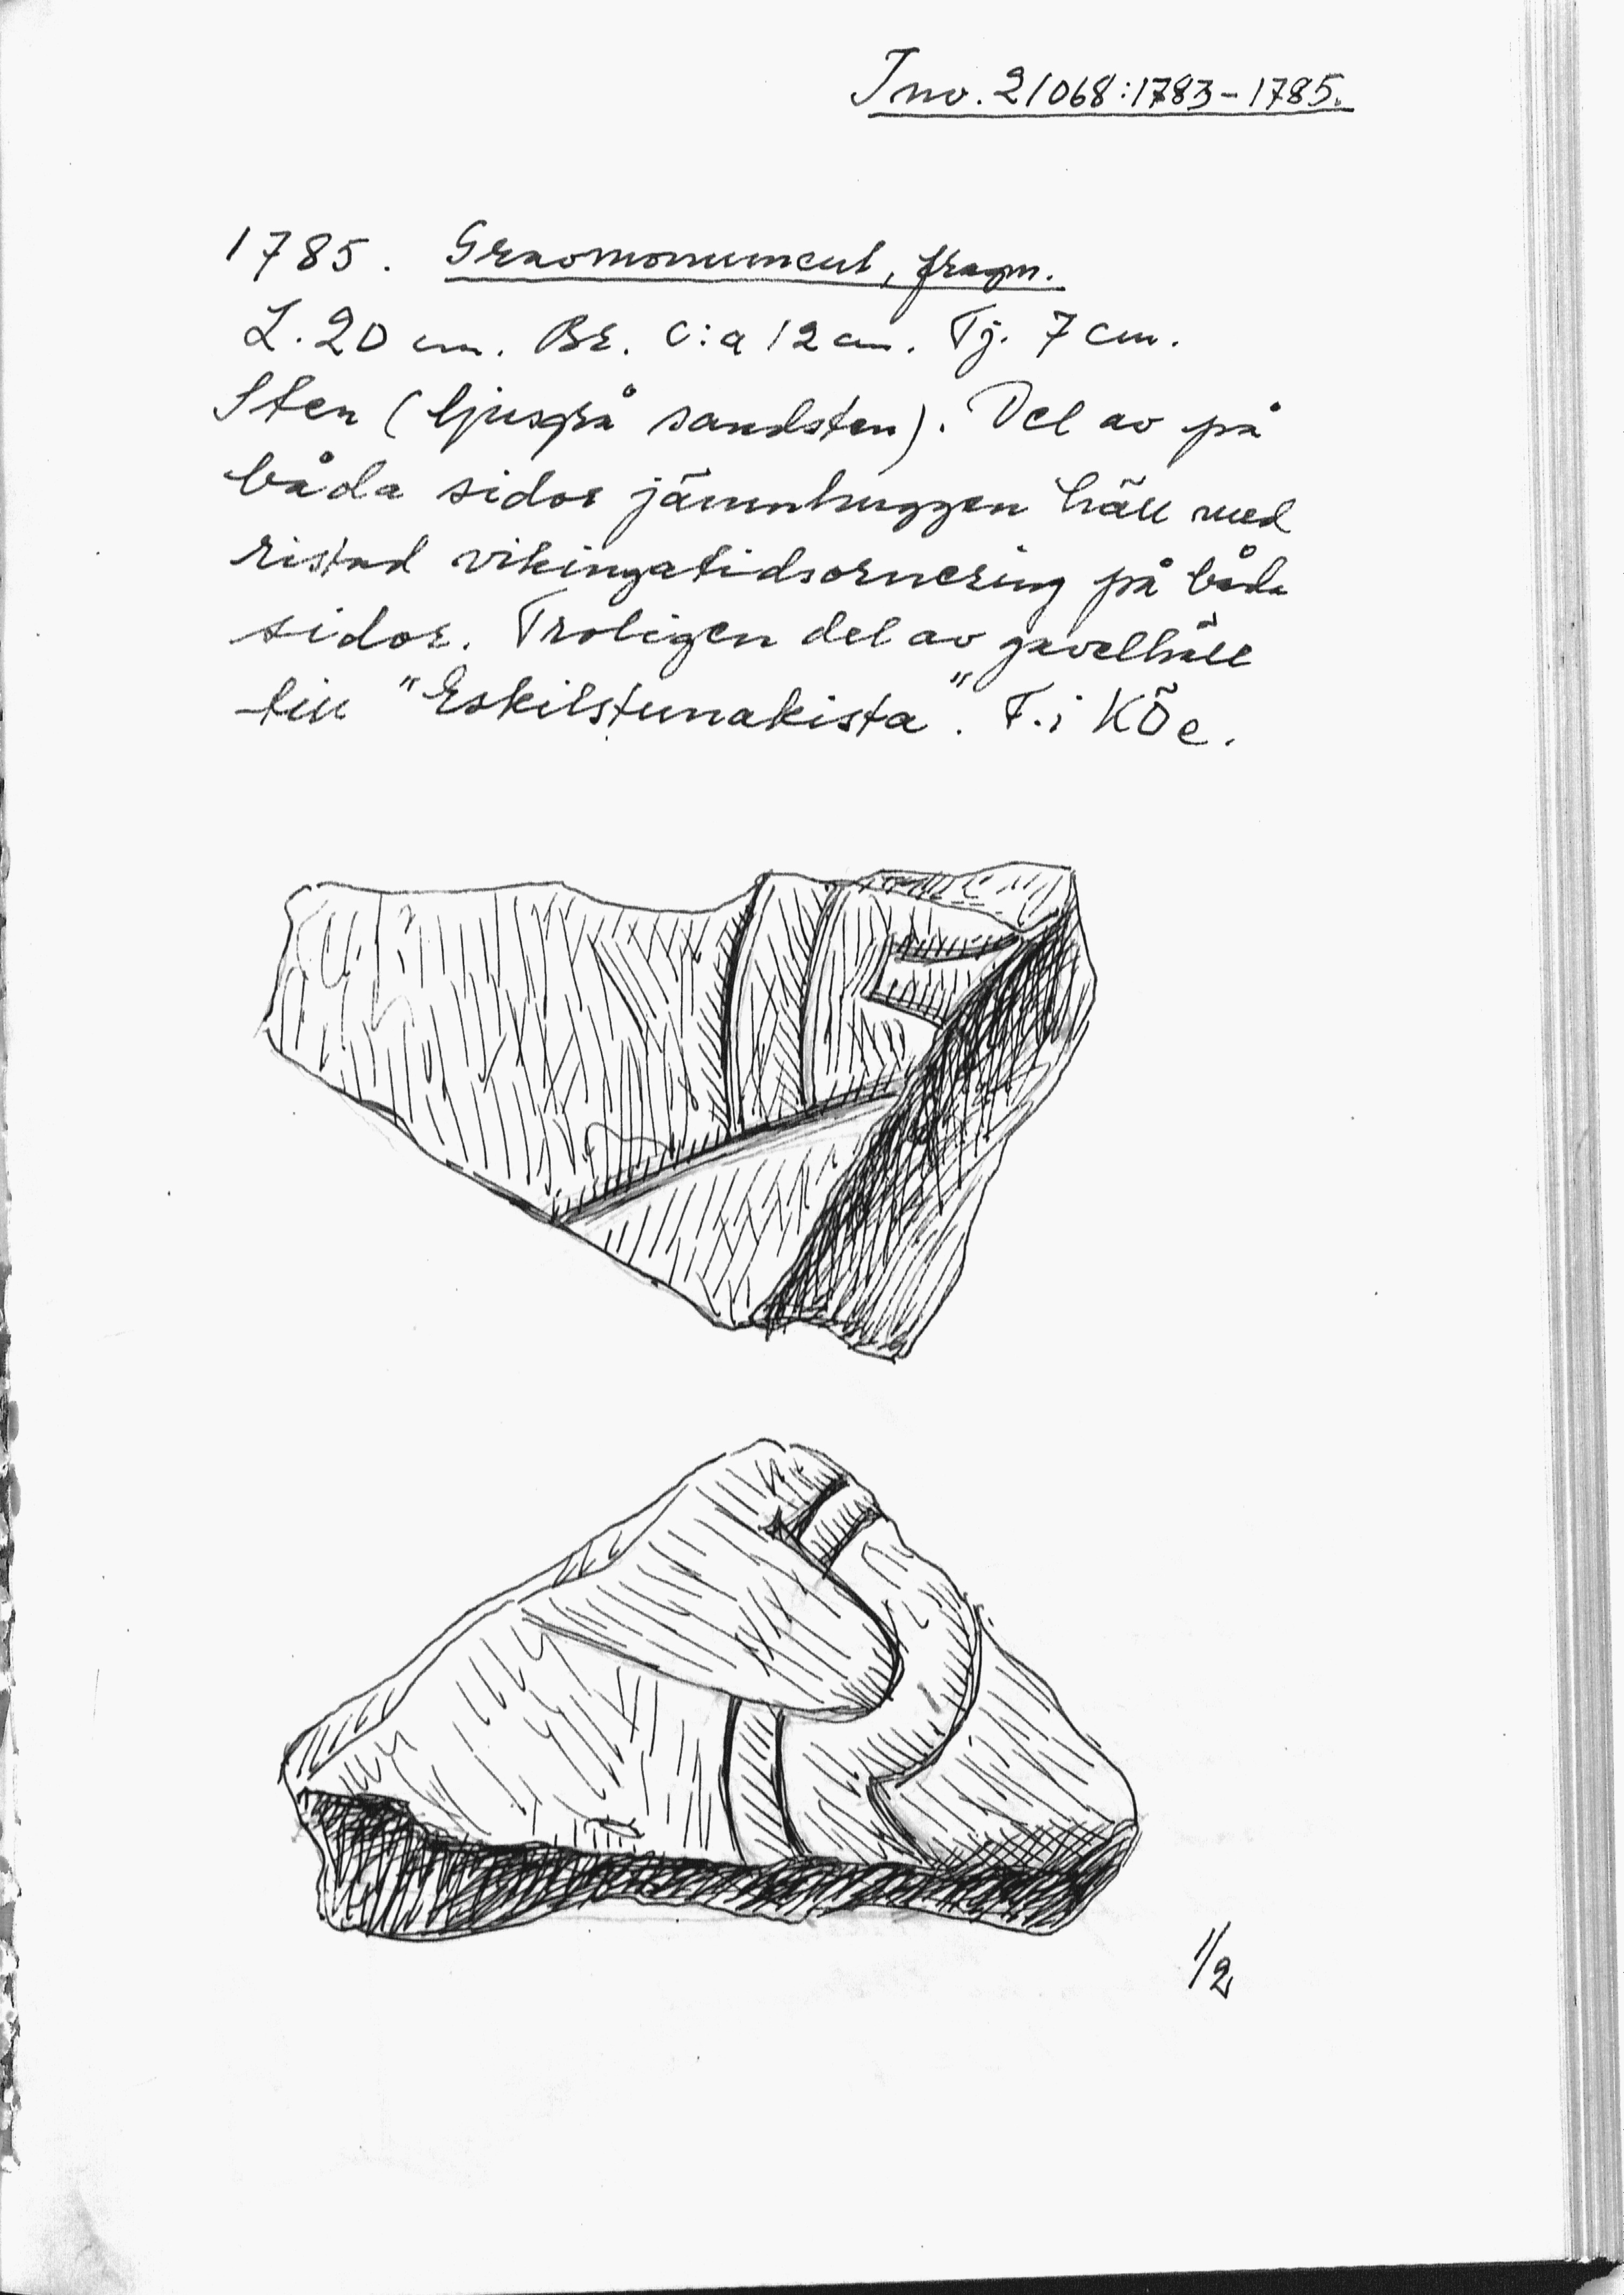 Inv. 21068:1783-1785.
1785. Gravmonument, fragm.
L. 20 cm. Br. c:a 12 cm. Tj. 7 cm.
Sten (ljusgrå sandsten). Del av på
båda sidor jämnhuggen häll med
ristad vikingatidsornering på båda
sidor. Troligen del av gavelhäll
till "Eskilstunakista". F. i KÖe.
1/2